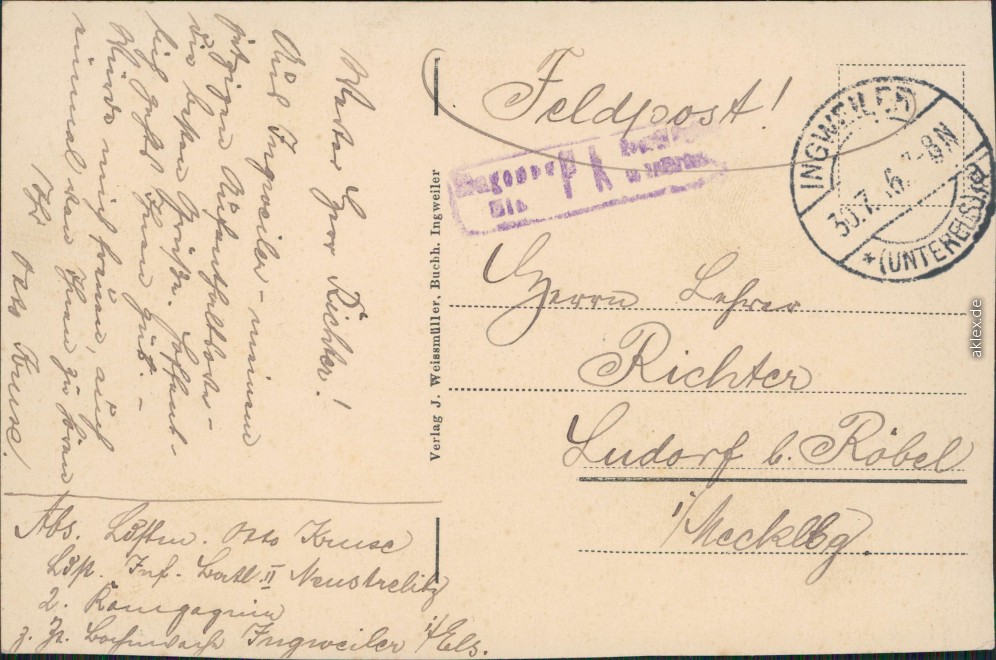 Werter Herr Richter!
Aus Ingweiler - meinem
jetzigen Aufenthaltsorte -
die besten Grüße. Hoffent-
lich geht's Ihnen gut. -
Würde mich freuen, auch
einmal von Ihnen zu hören
Ihr Otto Kruse.
Abs. Ldstm. Otto Kruse
Ldst. Inf. Batl. II Neustrelitz
2. Kompagnie
z. Zt. Bahnwache Ingweiler i/Els.
Verlag J. Weissmüller, Buchh. Ingweiler
Feldpost!
P K
INGWEILER
30.7.16. 7-8N
* (UNTERELSASS)
Herrn Lehrer
Richter
Ludorf b. Röbel
i/Mecklbg.
aklex.de